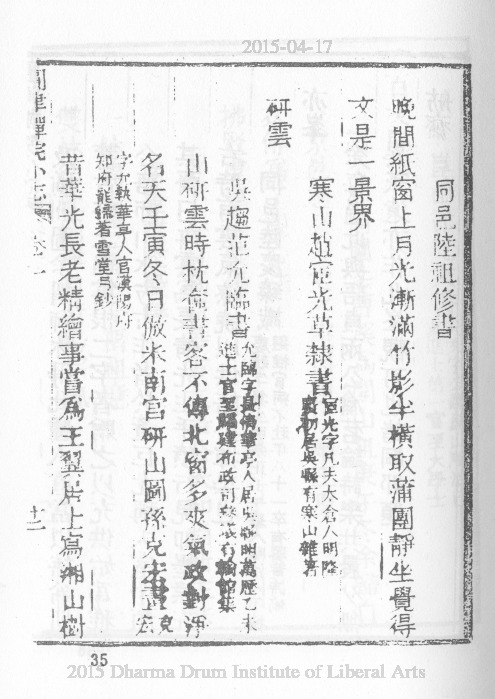 2015-04-17
同邑陸祖修書
晚間紙窗上月光漸滿竹影半橫取蒲團靜坐覺得
又是一景界
寒山趙宧光草隸書宧光字凡夫太倉人明隆
居吳縣有寒山雜著
研雲
吳趨范允臨書允臨字長倩華亭人居吳縣明萬歷乙未
進士官至福建布政司參議有輸館集
山研雲時枕龕書客不傳北窗多爽氣政對浮
名天壬寅冬日倣米南宮研山圖孫克宏畫克宏
字允執華亭人官漢陽府
知府能詩著雪堂弓鈔
昔華光長老精繪事嘗為王翼居士寫湘山樹
津禪院小志 卷一
十二
35
2015 Dharma Drum Institute of Liberal Arts